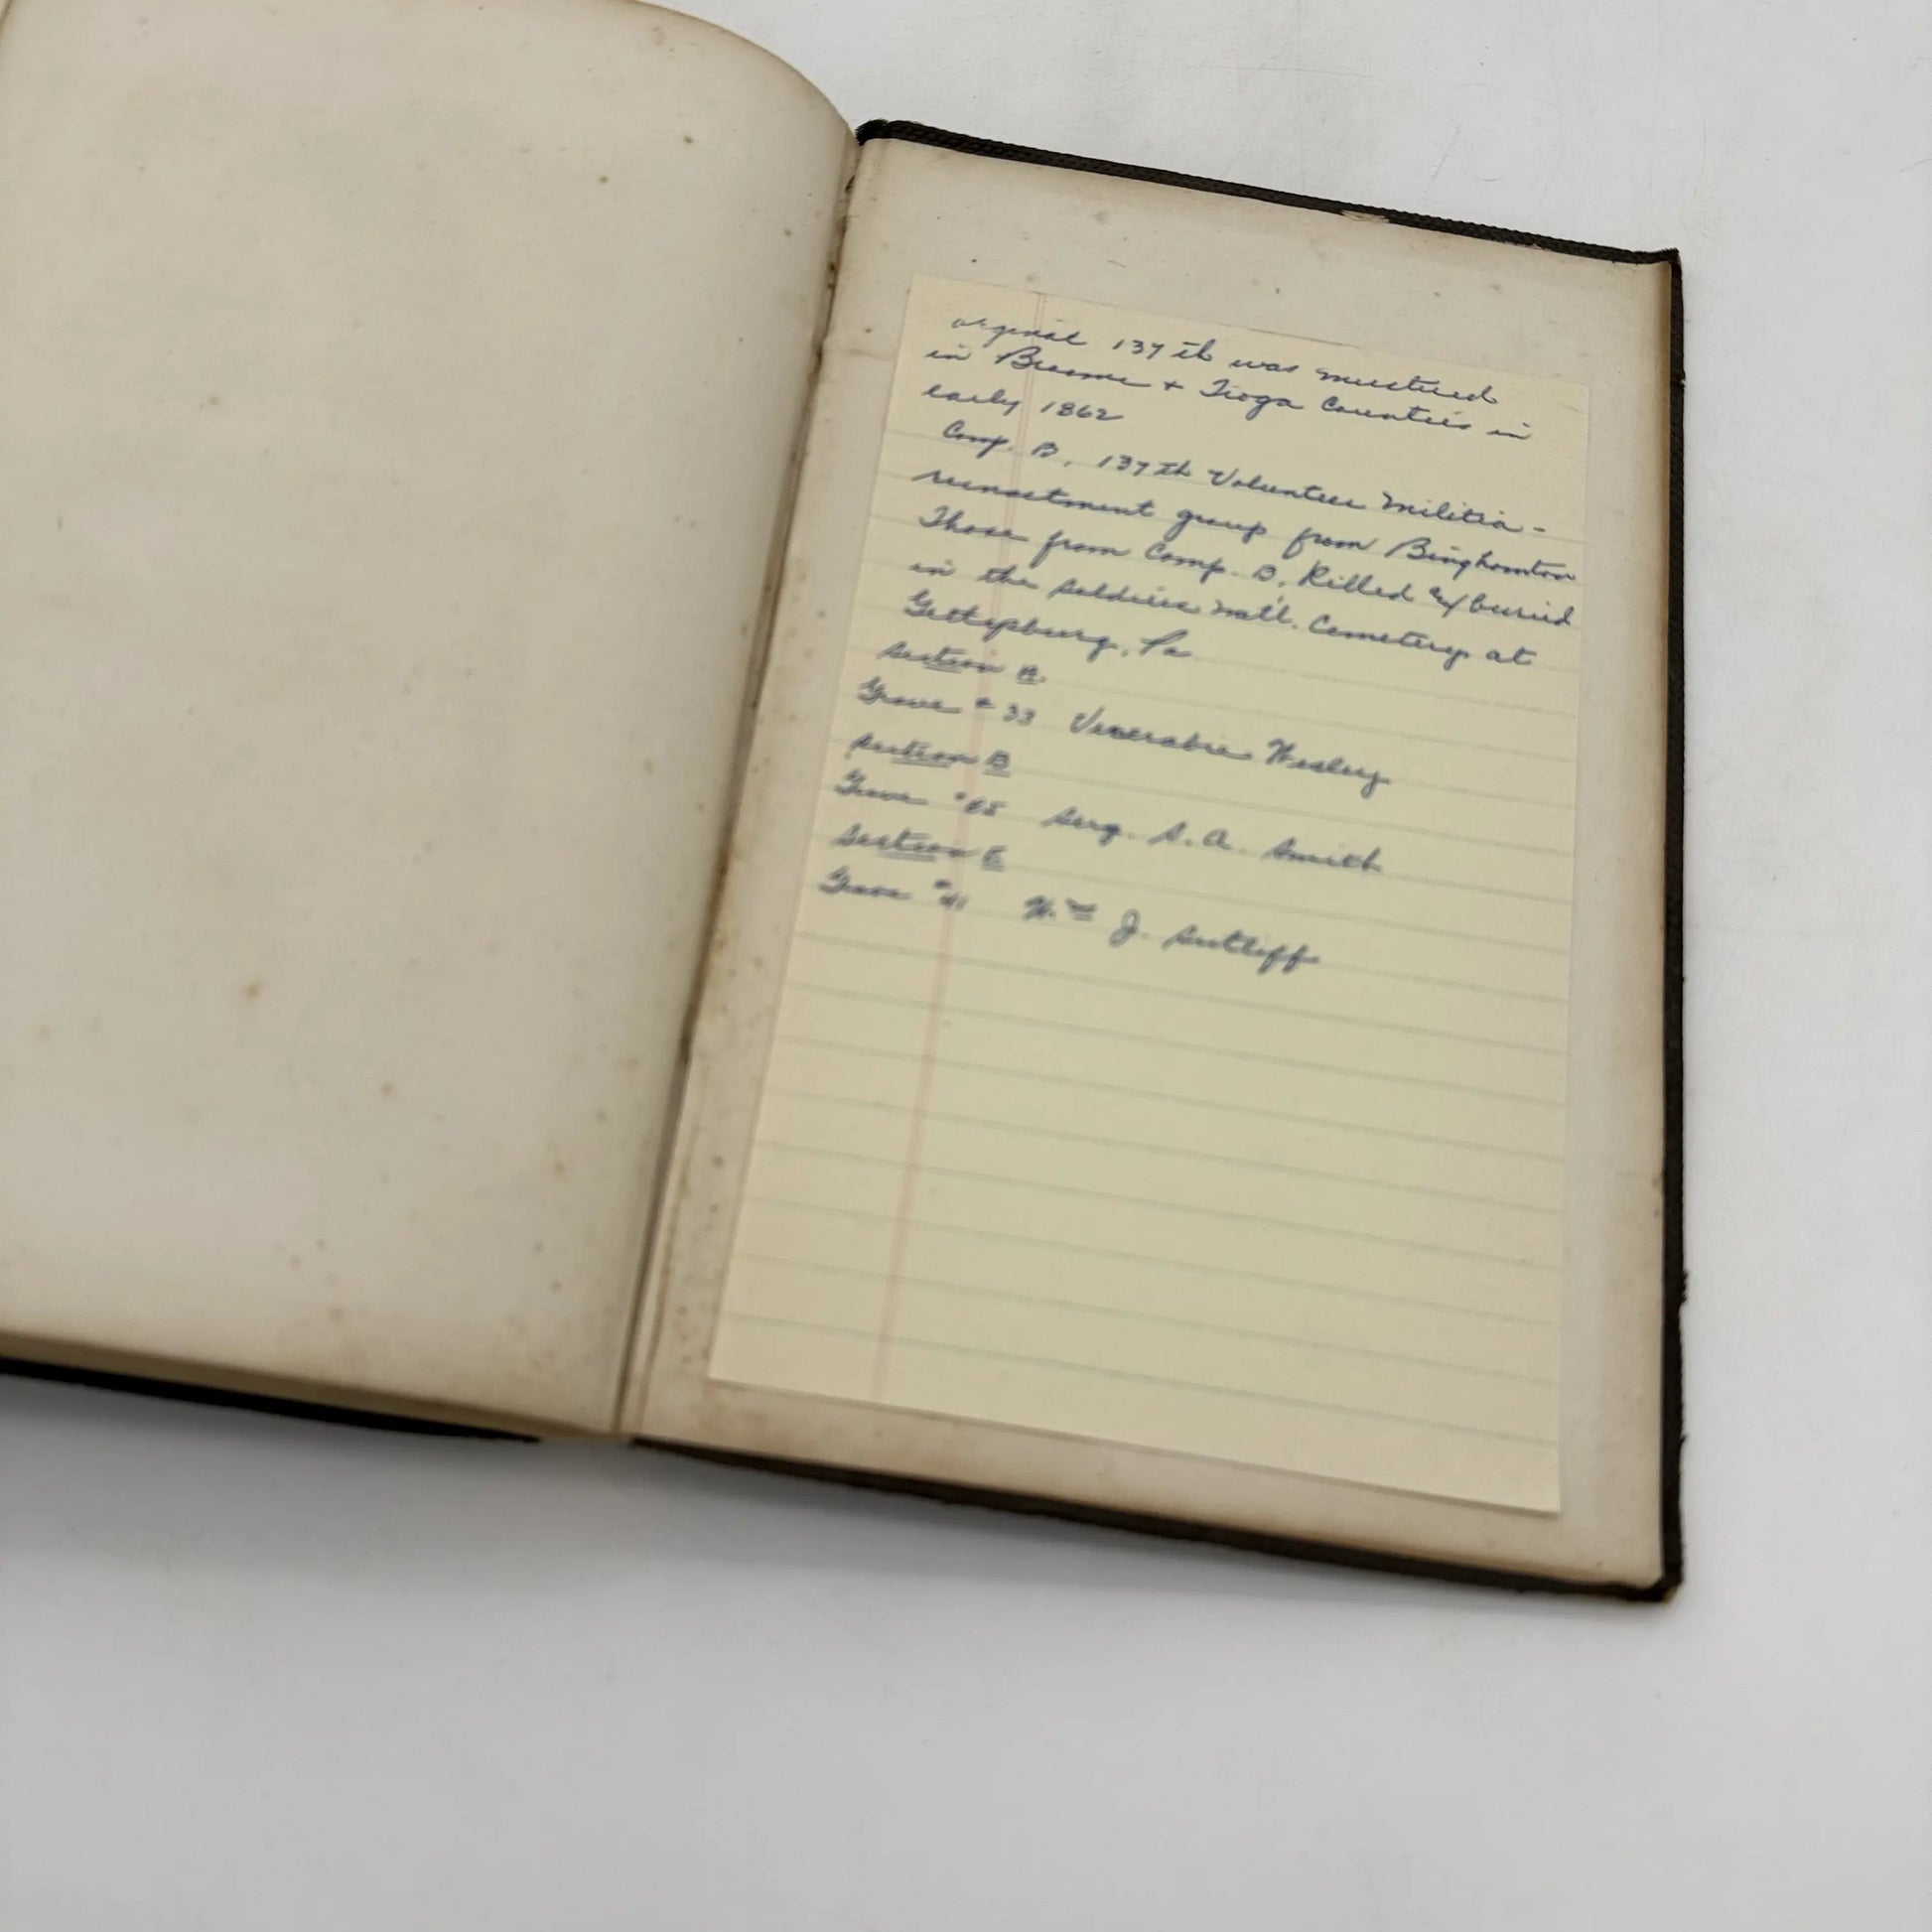 orginal 137th was mustured
in Broome + Tioga Counties in
early 1862
Comp. B, 137th Volunteer Militia -
reenactment group from Binghamton
Those from Comp. B, Killed & buried
in the Soldiers Nat'l. Cemetery at
Gettysburg, Pa
Section
Grave # 33 Venerable Wesley
Section B
Grave # Serg. S. A. Smith
Section E
Grave # Wm J. Sutliff